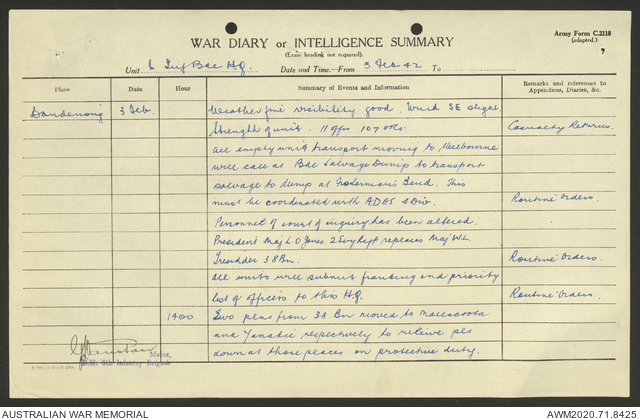 Army Form C.2118
(adapted.)
WAR DIARY or INTELLIGENCE SUMMARY
(Erase heading not required).
Unit 6 Inf Bde HQ. Date and Time.—From 3 Feb 42 To
Place Date Hour Summary of Events and Information Remarks and references to Appendices, Diaries, &c.
Dandenong 3 Feb. Weather fine visibility good. Wind SE slight.
Strength of unit. 11 offrs 107 ORs. Casualty Returns.
All empty unit transport moving to Melbourne
will call at Bde Salvage Dump to transport
salvage to dump at Fisherman's Bend. This
must be coordinated with ADOS 4 Div. Routine Orders.
Personnel of court of inquiry has been altered.
President Maj L.O Jones replaces Maj W.L.
38 Bn. Routine Orders.
All units will submit and priority
list of officers to this HQ. Routine Orders.
1400 Two plns from 38 Bn moved to Mallacoota
and respectively to relieve pls
down at those places on protective duty.
Major,
6th Infantry Brigade
AUSTRALIAN WAR MEMORIAL AWM2020.71.8425